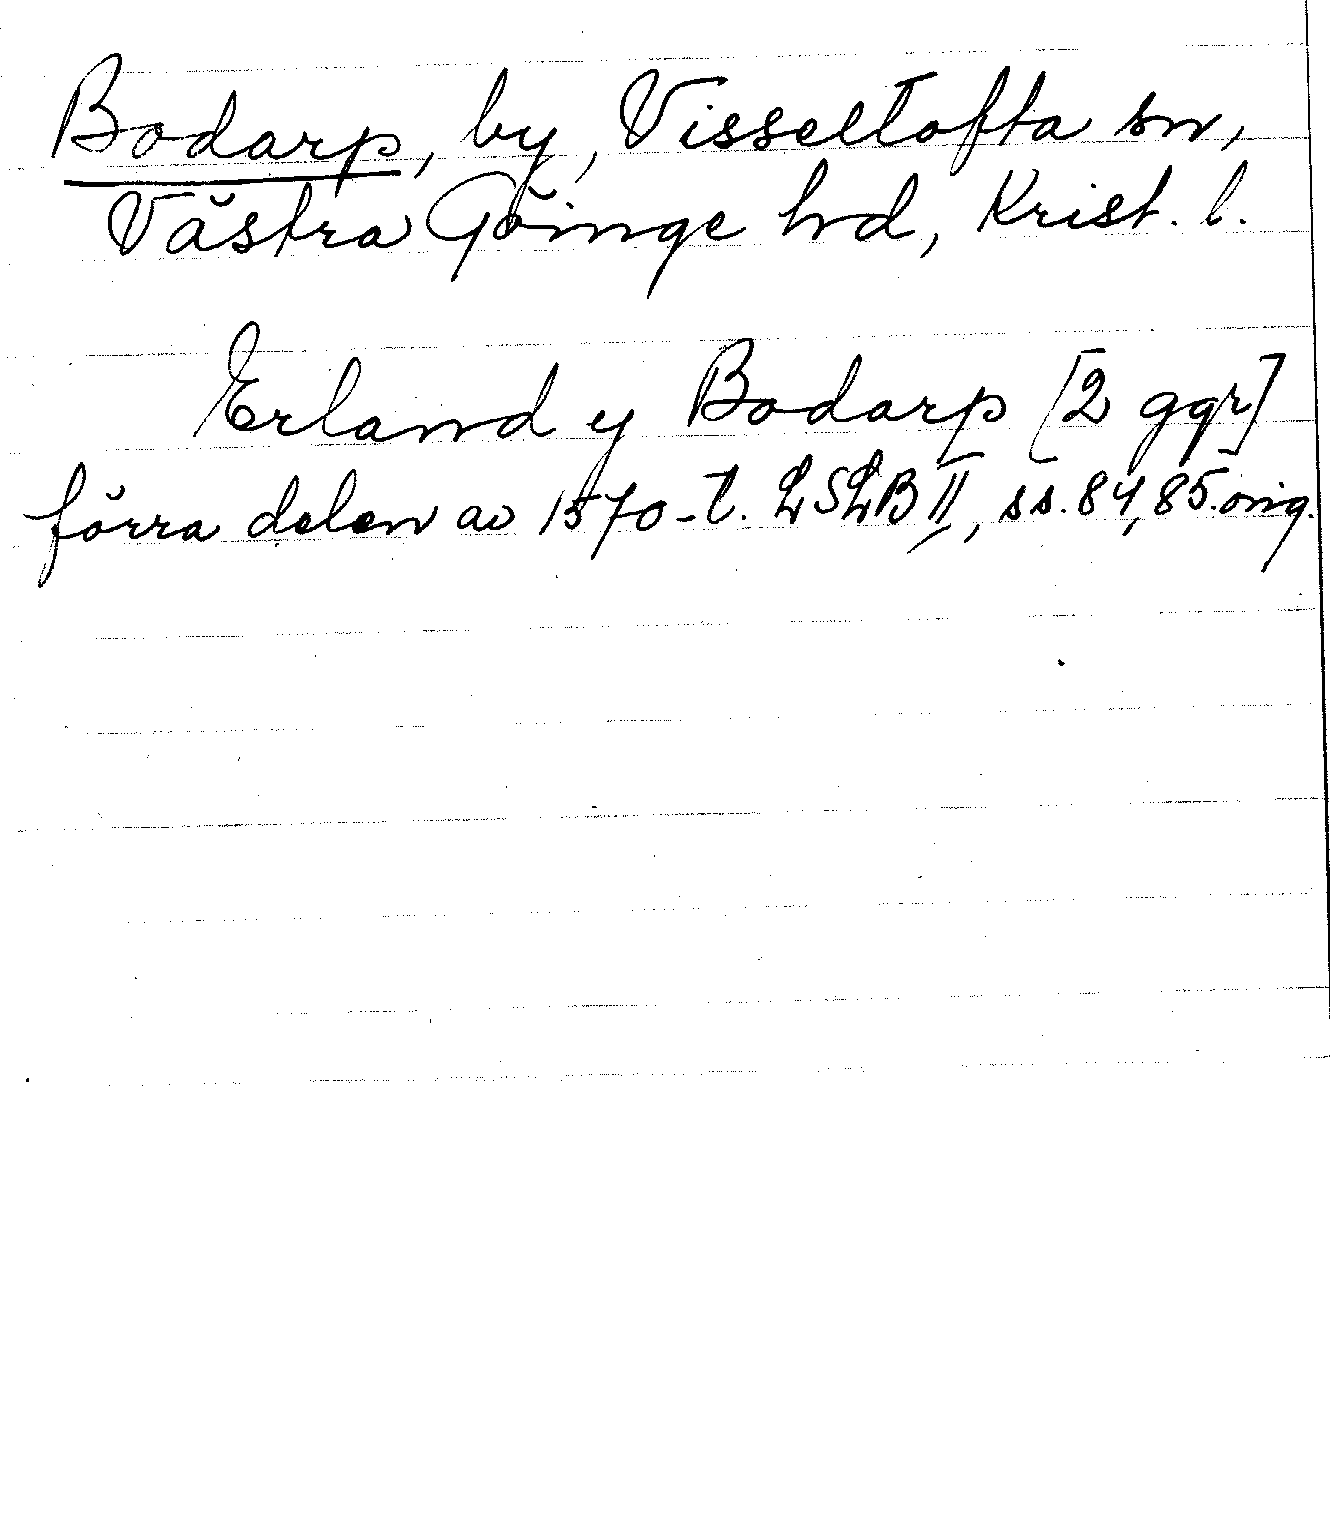 Bodarp, by, Visseltofta sn,
Västra Göinge hd, Krist. l.
Erland y Bodarp [2 ggr]
förra delen av 1570-t. LSLB II, ss. 84, 85. orig.